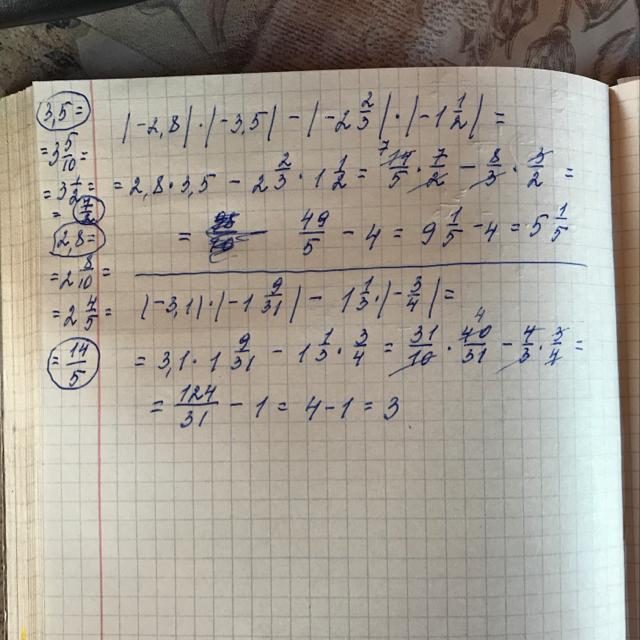 3,5 =
= 3 5/10 =
= 3 1/2 =
= 7/2
2,8 =
= 2 8/10 =
= 2 4/5 =
= 14/5
|-2,8| · |-3,5| - |-2 2/3| · |-1 1/2| =
= 2,8 · 3,5 - 2 2/3 · 1 1/2 = 7 14/5 · 7/2 - 8/3 · 3/2 =
= 49/5 - 4 = 9 1/5 - 4 = 5 1/5
|-3,1| · |-1 9/31| - 1 1/3 · |-3/4| =
= 3,1 · 1 9/31 - 1 1/3 · 3/4 = 31/10 · 40/31 4 - 4/3 · 3/4 =
= 124/31 - 1 = 4 - 1 = 3